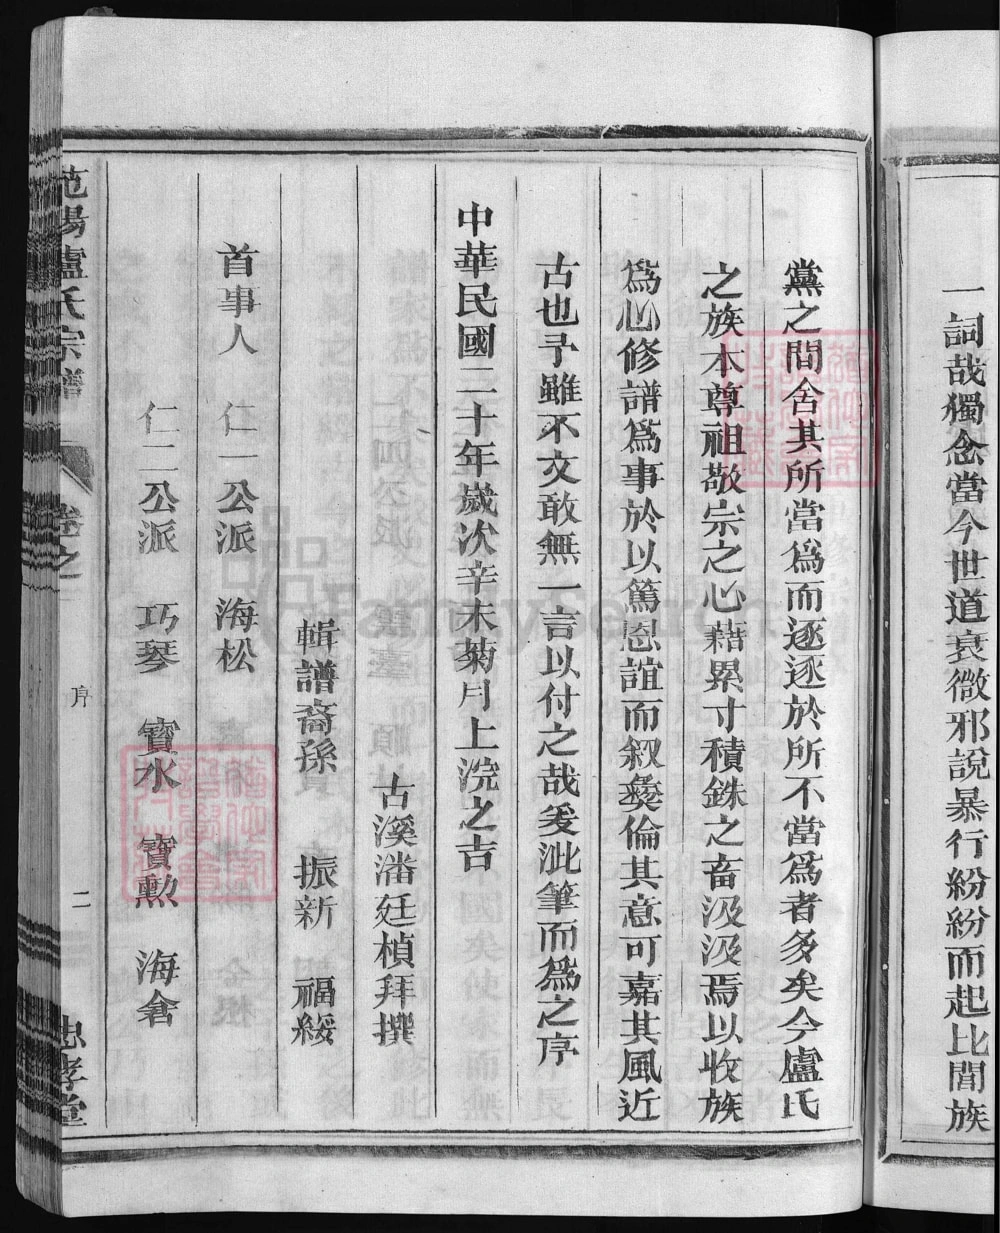 一詞哉獨念當今世道衰微邪說暴行紛紛而起比閭族
黨之間舍其所當爲而逐逐於所不當爲者多矣今盧氏
之族本尊祖敬宗之心藉累寸積銖之畜汲汲焉以收族
爲心修譜爲事於以篤恩誼而叙彝倫其意可嘉其風近
古也予雖不文敢無一言以付之哉爰泚筆而爲之序
中華民國二十年歲次辛未菊月上浣之吉
古溪潘廷楨拜撰
輯譜裔孫賓 振新 福綏
首事人 仁一公派 海松
仁二公派 巧琴 寶水 寶勲 海倉
范陽盧氏宗譜 卷之一 序 二 忠孝堂